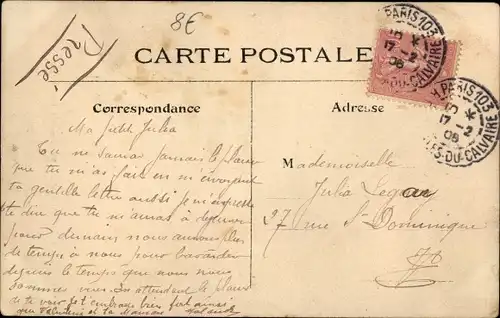 Pressé
8€
CARTE POSTALE
PARIS 103
17-2
08
DU-CALVAIRE
PARIS 103
17-2
08
DU-CALVAIRE
Correspondance
Adresse
Ma petite Julia
Tu ne saurais jamais le plaisir
que tu m'as fait en m'envoyant
ta gentille lettre aussi je m'empresse
te dire que tu m'amas à déjeuner
pour demain nous aurons plus
de temps à nous pour bavarder
depuis le temps que nous nous
sommes vues. En attendant le plaisir
de te voir je t'embrasse bien fort ainsi
que Valentine et ta Maman
Mademoiselle
Julia
27 rue St Dominique